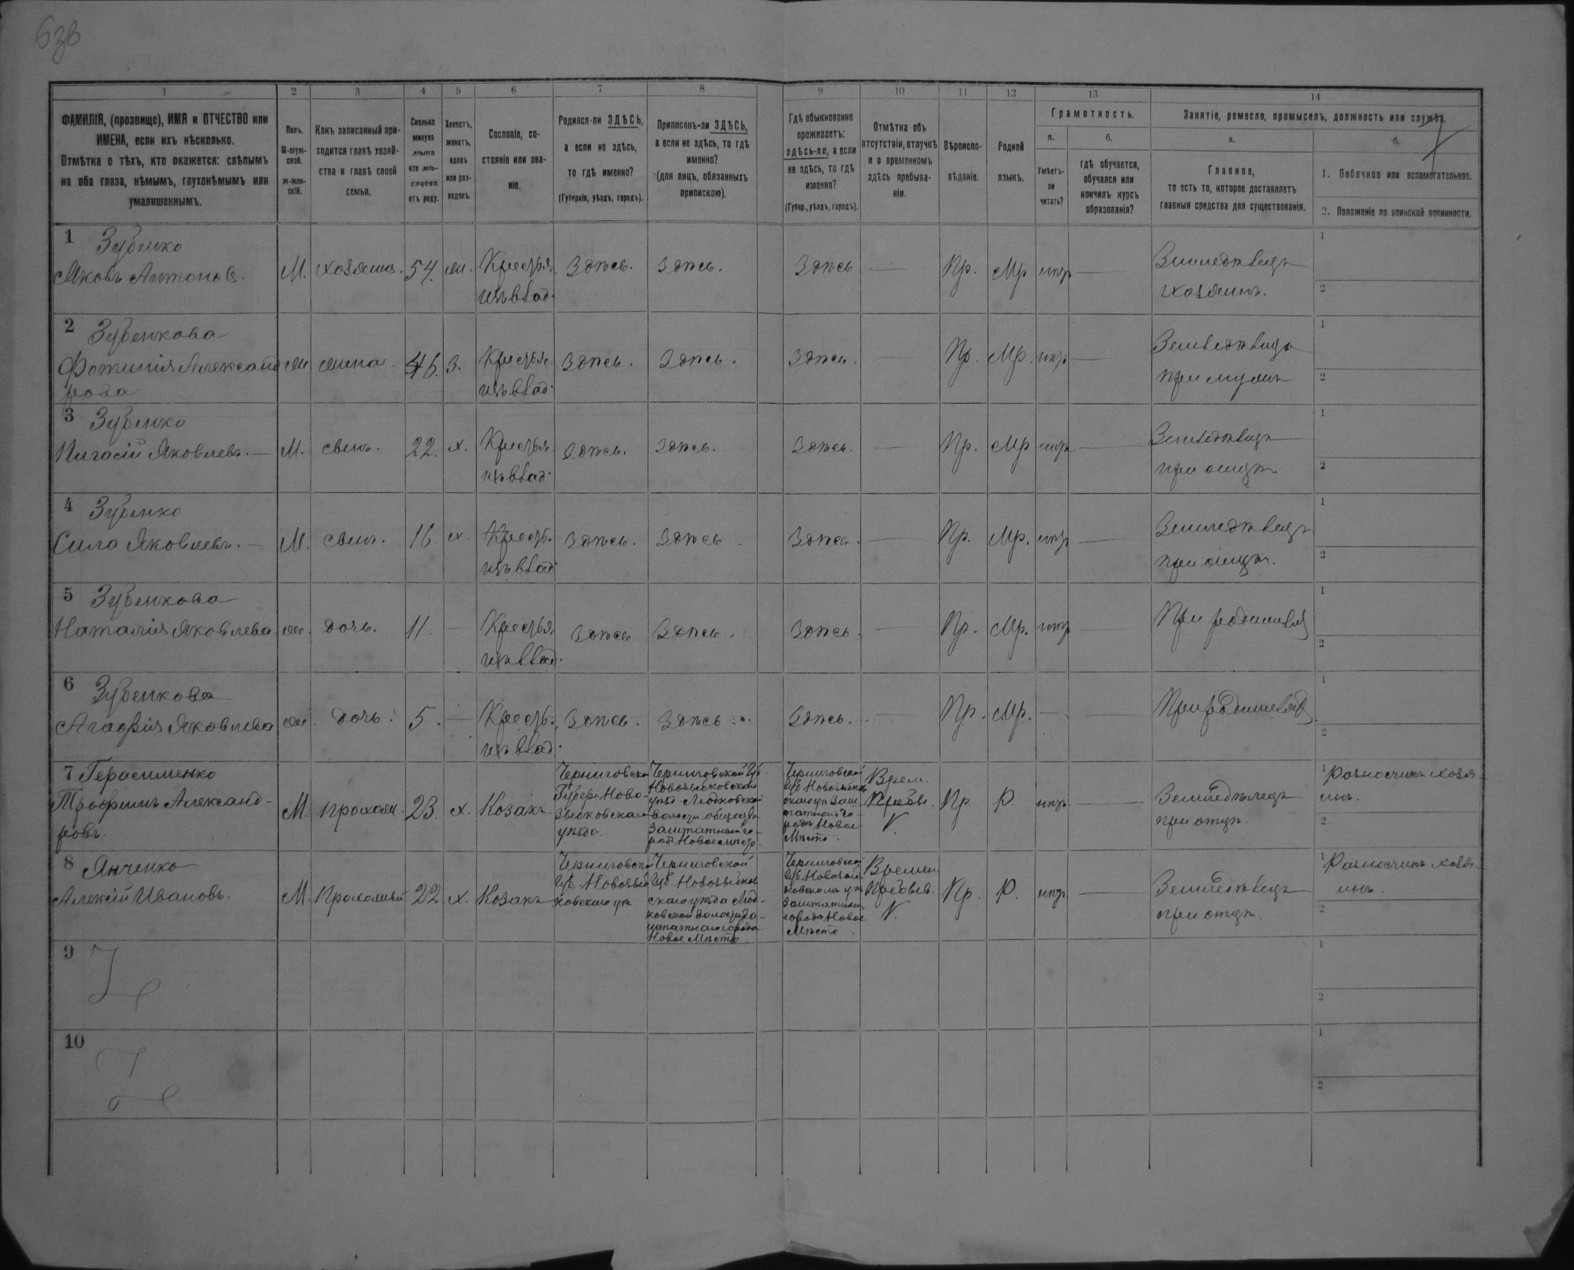 1
2
3
4
5
6
7
8
9
10
11
12
13
14
ФАМИЛІЯ, (прозвище), ИМЯ и ОТЧЕСТВО или
ИМЕНА, если ихъ нѣсколько.
Отмѣтка о тѣхъ, кто окажется: слѣпымъ
на оба глаза, нѣмымъ, глухонѣмымъ или
умалишеннымъ.
Полъ.
М-муж-
ской.
ж-жен-
скій.
Какъ записанный при-
ходится главѣ хозяй-
ства и главѣ своей
семьи.
Сколько
минуло
лѣтъ
или мѣ-
сяцевъ
отъ роду.
Холостъ,
женатъ,
вдовъ
или раз-
веденъ.
Сословіе, со-
стояніе или зва-
ніе.
Родился-ли ЗДѢСЬ,
а если не здѣсь,
то гдѣ именно?
(Губернія, уѣздъ, городъ).
Приписанъ-ли ЗДѢСЬ,
а если не здѣсь, то гдѣ
именно?
(для лицъ, обязанныхъ
припискою).
Гдѣ обыкновенно
проживаетъ:
здѣсь-ли, а если
не здѣсь, то гдѣ
именно?
(Губер., уѣздъ, городъ).
Отмѣтка объ
отсутствіи, отлучкѣ
и о временномъ
здѣсь пребыва-
ніи.
Вѣроиспо-
вѣданіе.
Родной
языкъ.
Грамотность.
а.
Умѣетъ-
ли
читать?
б.
гдѣ обучается,
обучался или
кончилъ курсъ
образованія?
Занятіе, ремесло, промыселъ, должность или служба.
а.
Главное,
то есть то, которое доставляетъ
главныя средства для существованія.
б.
1. Побочное или вспомогательное.
2. Положеніе по воинской повинности.
1 Зубенко
Яковъ Антонов.
М. хозяинъ. 54. ж. Крестья. Здѣсь. Здѣсь. Здѣсь — Пр. Мр. нѣтъ — Земледѣлецъ
изъ влад. хозяинъ.
1
2
2 Зубенкова
Фотинія Александ
рова
ж жена 46. з. Крестья. Здѣсь. Здѣсь. Здѣсь. — Пр. Мр. нѣтъ — Земледѣлецъ
изъ влад. при мужѣ
1
2
3 Зубенко
Пигасій Яковлевъ. —
М. сынъ. 22. х. Крестья Здѣсь. Здѣсь. Здѣсь. — Пр. Мр нѣтъ — Земледѣлецъ
изъ влад. при отцѣ
1
2
4 Зубенко
Сила Яковлевъ. —
М. сынъ. 16. х. Кресть. Здѣсь. Здѣсь. Здѣсь. — Пр. Мр. нѣтъ — Земледѣлецъ
изъ влад при отцѣ.
1
2
5 Зубенкова
Наталія Яковлева
ж. дочь. 11. — Крестья. Здѣсь Здѣсь. Здѣсь. — Пр. Мр. нѣтъ — При родителяхъ
изъ влад.
1
2
6 Зубенкова
Агафія Яковлева
ж. дочь. 5. — Кресть. Здѣсь. Здѣсь Здѣсь. — Пр. Мр. — — При родителяхъ
изъ влад.
1
2
7 Герасименко
Трофимъ Александ-
ровъ.
М. 23. х. Козакъ
Черниговской
Губер. Ново-
зыбковскаго
уѣзда.
Черниговской Губ.
Новозыбковскаго
уѣзд.
Заштатнаго го-
род. Новое мѣсто.
Черниговской
губ. Новозыбков
Новое
Мѣсто.
Врем.
Пребы.
Пр. Р. нѣтъ —
Земледѣлецъ
при отцѣ.
1
2
8 Янченко
Алексій Ивановъ.
М. 22. х. Козакъ
Черниговской
Губ. Новозыб
ковскаго уѣз
Черниговской
Губ. Новозыбков
скаго уѣзда
Новое Мѣсто.
Черниговской
губ. Новозыб
ковскаго уѣз
Заштатнаго
города Новое
Мѣсто.
Времен.
Пребыв.
Пр. Р. нѣтъ —
Земледѣлецъ
при отцѣ.
1
2
9
1
2
10
1
2